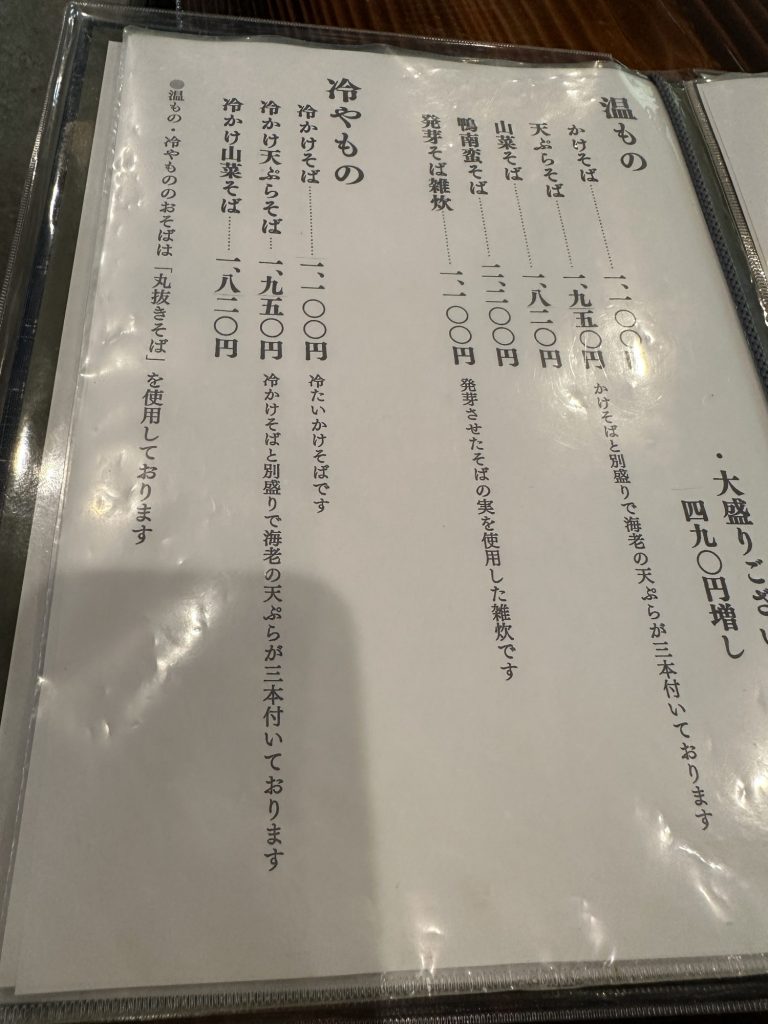 ・大盛りござい
四九〇円増し
温もの
かけそば 一、一〇〇円
天ぷらそば 一、九五〇円 かけそばと別盛りで海老の天ぷらが三本付いております
山菜そば 一、八二〇円
鴨南蛮そば 二、二〇〇円
発芽そば雑炊 一、一〇〇円 発芽させたそばの実を使用した雑炊です
冷やもの
冷かけそば 一、一〇〇円 冷たいかけそばです
冷かけ天ぷらそば 一、九五〇円 冷かけそばと別盛りで海老の天ぷらが三本付いております
冷かけ山菜そば 一、八二〇円
●温もの・冷やもののおそばは「丸抜きそば」を使用しております